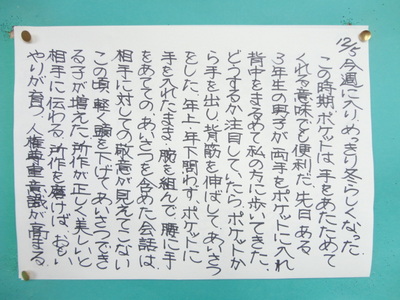 12/5 今週に入り、めっきり冬らしくなった。
この時期、ポケットは、手をあたためて
くれる意味でも便利だ。先日、ある
3年生の男子が、両手をポケットに入れ
背中をまるめて、私の方に歩いてきた。
どうするか注目していたら、ポケットか
ら手を出し、背筋を伸ばして、あいさつ
をした。年上、年下問わず、ポケットに
手を入れたまま、腕を組んで、腰に手
をあてての、あいさつを含めた会話は、
相手に対しての敬意が見えてこない。
この頃、軽く頭を下げてあいさつでき
る子が増えた。所作が正しく美しいと
相手に伝わる。所作を磨けば、おもい
やりが育つ、人権尊重意識が高まる。